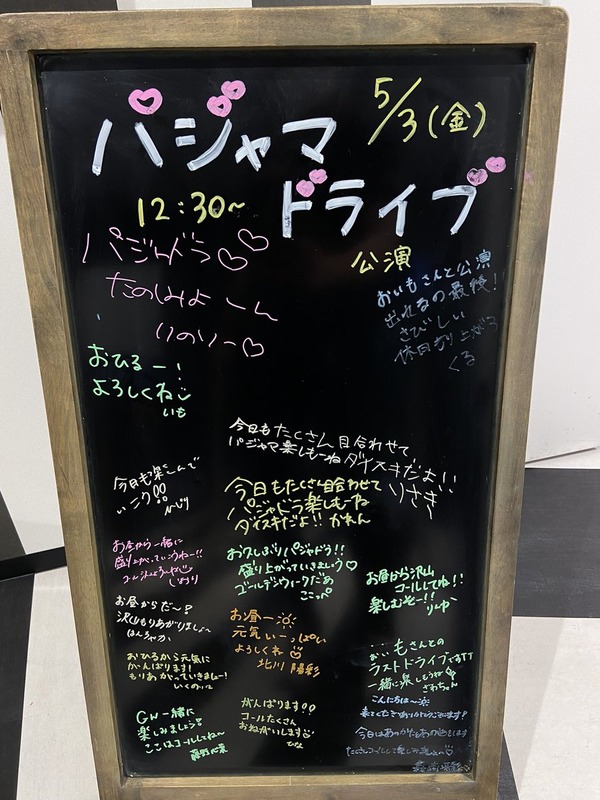 5/3(金)
パジャマ
ドライブ
12:30~
公演
パジャドラ♡♡
たのしみよーん
りのりー♡
おいもさんと公演
出れるの最後!
さびしい
休日盛り上がろ
くる
おひるー!
よろしくね
いも
今日もたくさん目合わせて
パジャマ楽しもーね ダイスキだよ!!
りさき
今日も楽しんで
いこう!!
今日もたくさん目合わせて
パジャドラ楽しもーね
ダイスキだよ!! かれん
お昼から一緒に
盛り上がっていこうねー!!
お久しぶりパジャドラ!!
盛り上がっていきましょう♡
ゴールデンウィークだあ
ここぺ
お昼から沢山
コールしてね!!
楽しむぞー!!
お昼からだ〜?
沢山もりあがりましょ〜
はんちゃか
お昼ー☀
元気いーっぱい
よろしくね
北川 陽彩
おいもさんとの
ラストドライブですTT
一緒に楽しもうね
さわちゃん
おひるから元気に
がんばります!
もりあがっていきましょー!
GW一緒に
楽しみましょう
ここはコールしてね〜
がんばります!!
コールたくさん
おねがいします
ひな
こんにちは〜
来てくださりありがとうございます!